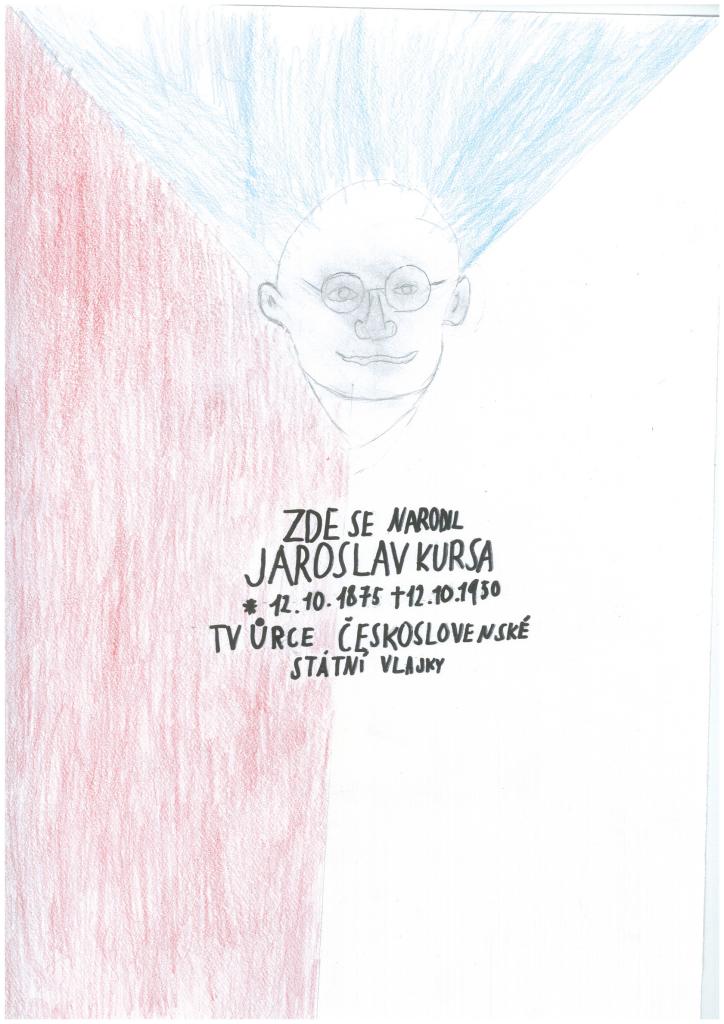 ZDE SE NARODIL
JAROSLAV KURSA
* 12.10.1875 †12.10.1950
TVŮRCE ČESKOSLOVENSKÉ
STÁTNÍ VLAJKY